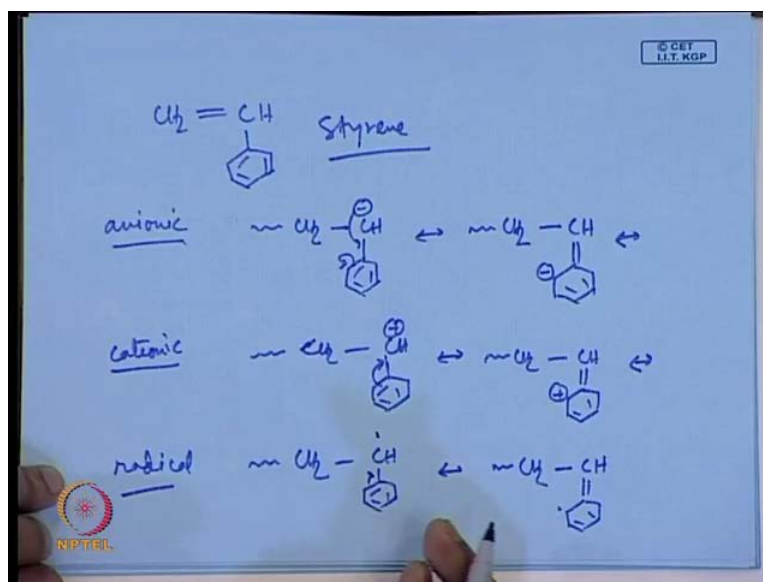 © CET
I.I.T. KGP
CH2 = CH
Styrene
anionic ~ CH2 - CH ↔ ~ CH2 - CH ↔
⊖ ⊖
cationic ~ CH2 - CH ↔ ~ CH2 - CH ↔
⊕ ⊕
radical ~ CH2 - CH ↔ ~ CH2 - CH
NPTEL